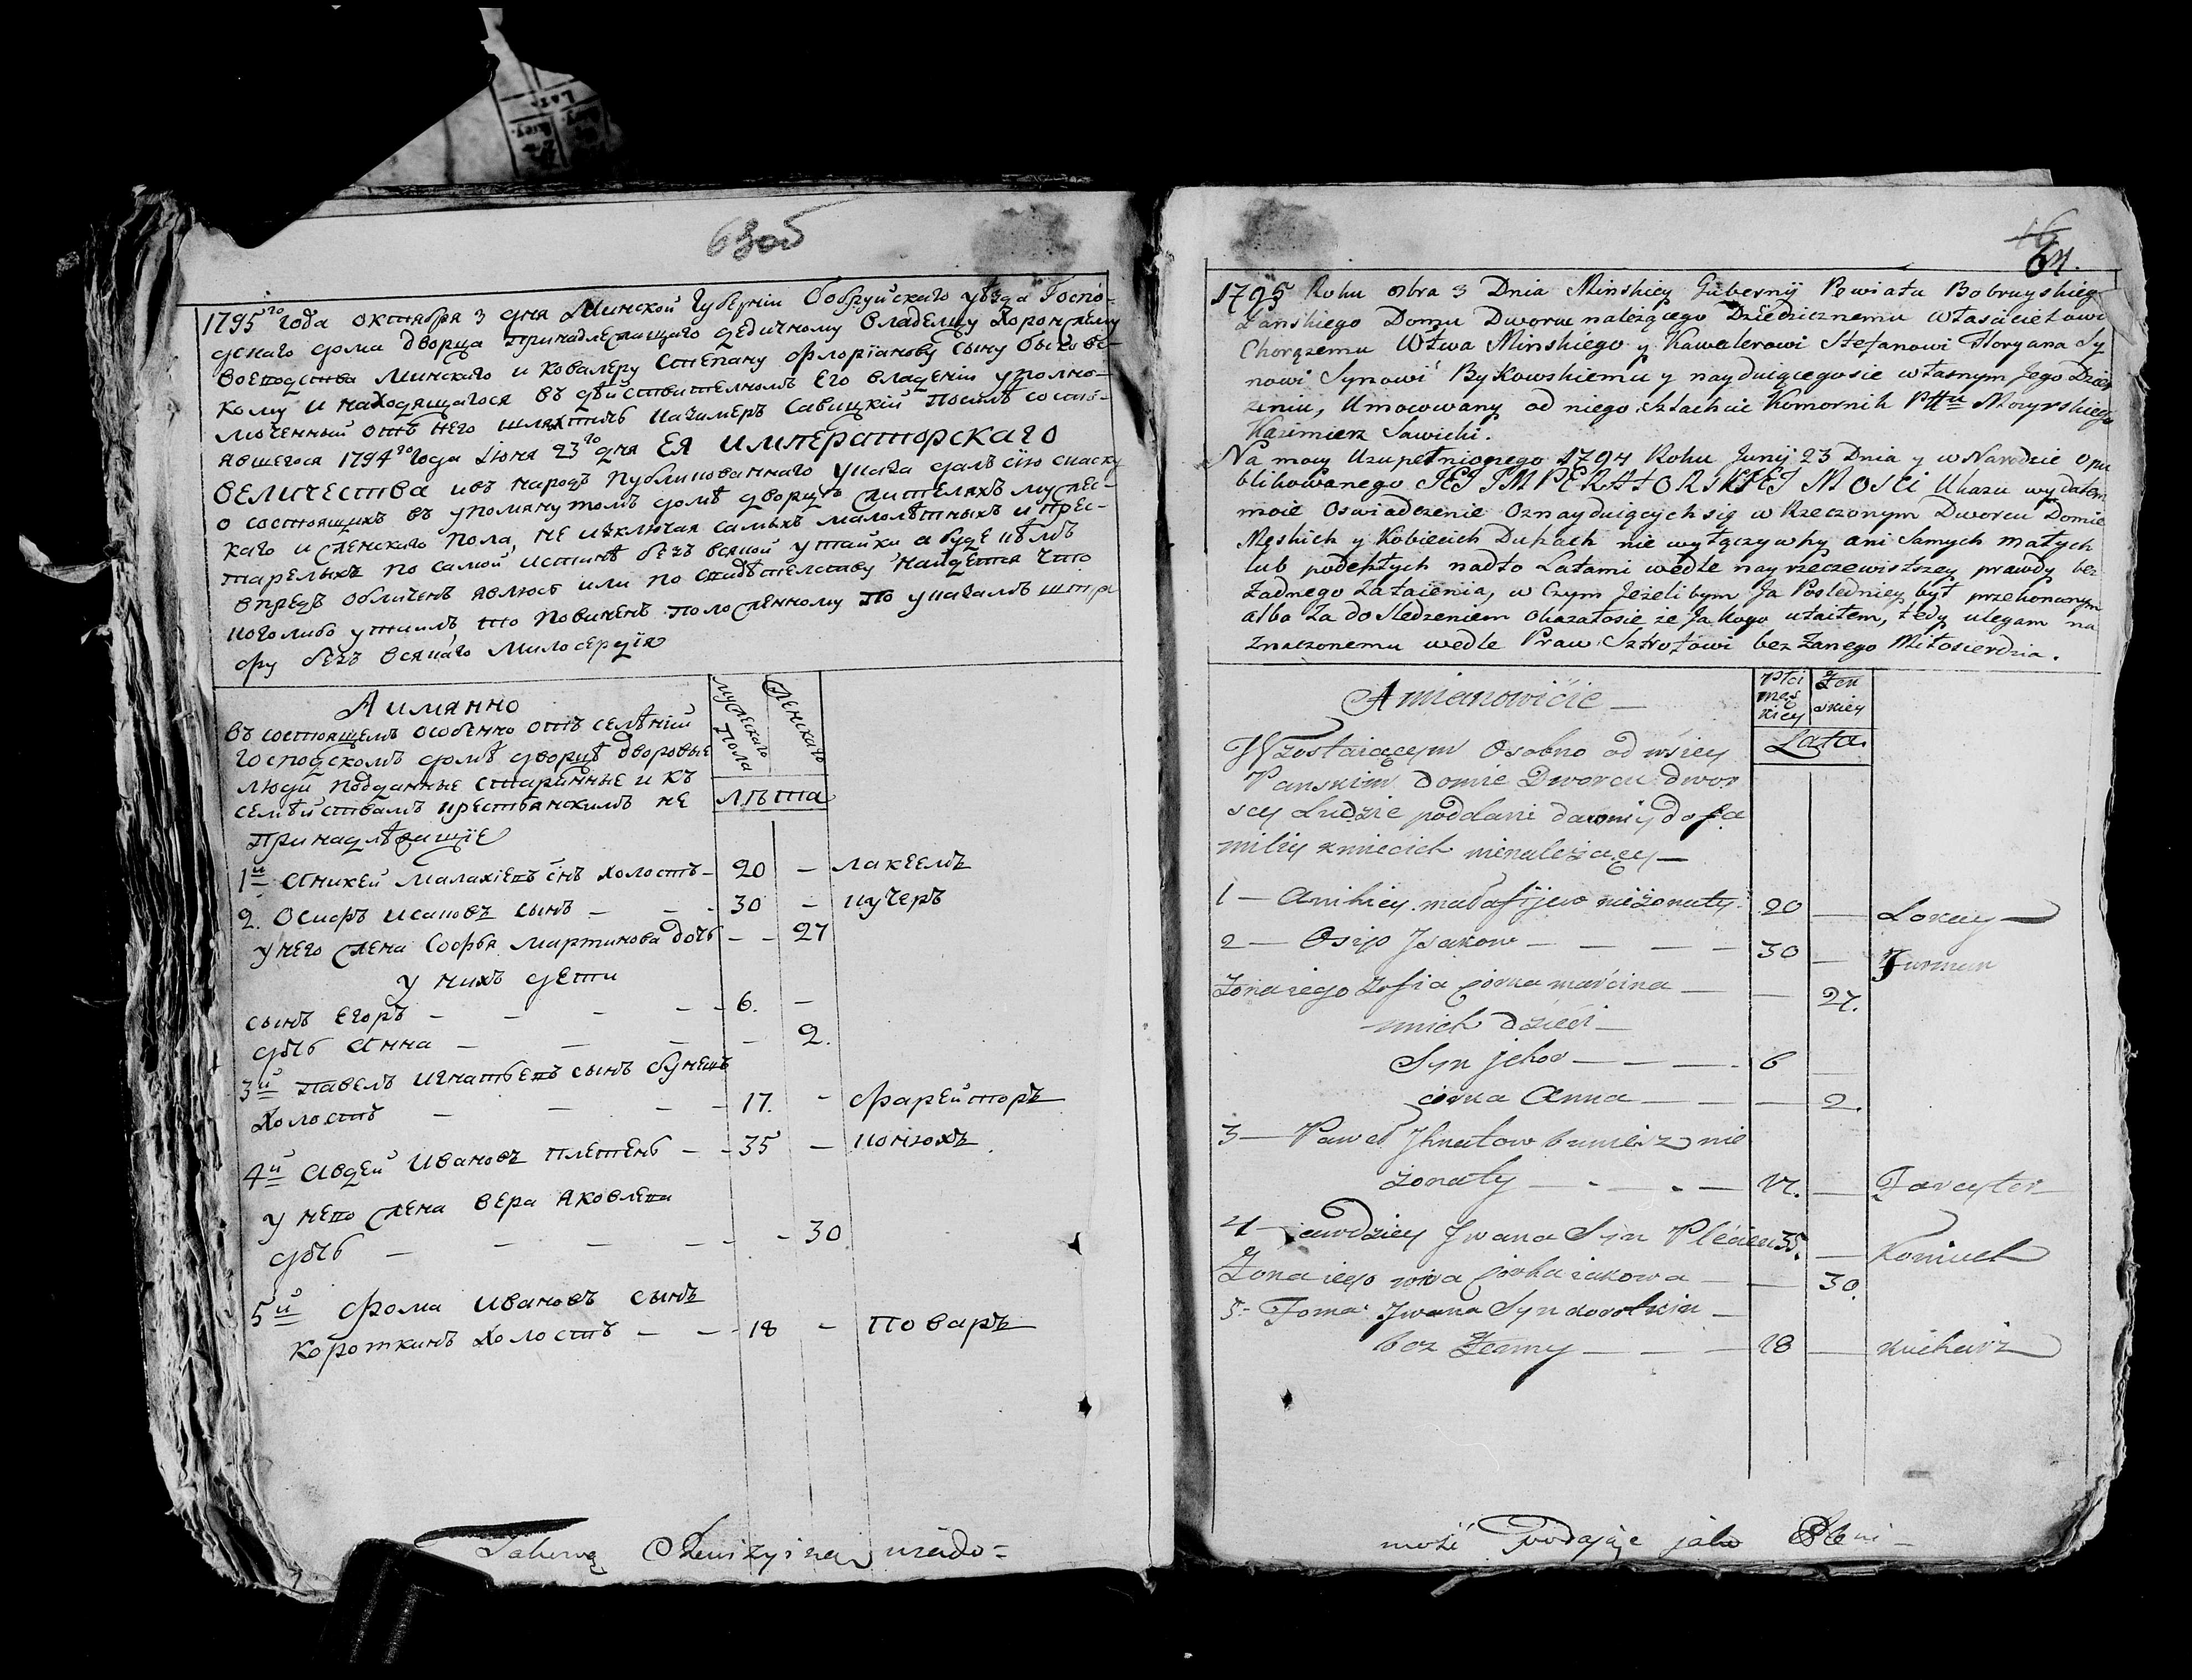 63об
1795го года октября 3 дня Минской губернiи бобруйскаго уѣзда Госпо-
дскаго дома дворца принадлежащаго дедичному владелцу Хоронжему
воеводства Минскаго и ковалеру Степану Флорiанову сыну быковс-
кому и находящагося въ дѣйствителномъ его владенiи уполно-
моченный отъ него шляхтичъ казимеръ Савицкiй после состо-
явшегося 1794го года Iюня 23го дня ЕЯ императорскаго
величества и въ народъ публикованнаго указа далъ сiю скаску
о состоящихъ въ упомянутомъ домѣ дворцѣ жителяхъ мужес-
каго и женскаго пола, не изключая самыхъ малолѣтныхъ и прес-
тарелыхъ по самой истинѣ безъ всякой утайки а буде въ чемъ
впредь обличенъ явлюсь или по свидѣтелству найдется что
кого либо утаилъ то повиненъ положенному по указамъ штра
фу безъ всякаго милосердiя
А имянно
мужескаго пола
женскаго
въ состоящемъ особенно отъ селѣнiй
господскомъ домѣ дворцѣ дворовые
люди подданные старинные и къ
семѣйствамъ крестьянскимъ не
принадлѣжащiе
лѣта
1й Аникей Малахiевъ снъ холостъ - 20 - лакеемъ
2. Осипъ исаковъ сынъ - - - 30 - кучеръ
у него жена Софья Мартинова дочь - - 27
у нихъ дети
сынъ Егоръ - - - - 6. -
дочь Анна - - - 2.
3й Павелъ игнатьевъ сынъ бунецъ
холостъ - - - - 17. - фарейторъ
4й Авдей Ивановъ плетень - - 35 - конюхъ
у него жена вера яковлева
дочь - - - - - - 30
5й Фома Ивановъ сынъ
короткинъ холостъ - - - 18 - поваръ
Takową Rewizyiną wiado=
16
64.
1795 Roku 8bra 3 Dnia Minskiey Gubernij Powiatu Bobruyskieg
Pańskiego Domu Dworcu należącego Dziedzicznemu Włascicielowi
Chorązemu Wtwa Minskiego y Kawalerowi Stefanowi Floryana Sy
nowi Synowi Bykowskiemu y nayduiącegosie własnym Jego Dzier
zeniu, Umocowany od niego Szlachcic Komornik Pttu Mozyrskiego
Kazimierz Sawicki.
Na mocy Uzupełnionego 1794 Roku Junij 23 Dnia y w Narodzie opu
blikowanego JEJ IMPERATORSKIEJ MOSCI Ukazu wydałem
moie Oswiadczenie Oznayduiących się w Rzeczonym Dworcu Domie
Męskich y Kobiecich Duszach nie wyłączywszy ani samych małych
lub podeszłych nadto Latami wedle nayrzeczewistszey prawdy bez
żadnego Zataienia, w Czym Jeżeli bym Ja Posledniey był przekonanym
albo Za dosledzeniem okazałosie że Ja kogo utaiłem, tedy ulegam na
znaczonemu wedle Praw Sztrofowi bez żanego Miłosierdzia.
Amianowićie -
Płci męs kiey
Żen skiey
Lata
Wzostaiącym Osobno od wsiey
Panskim domie Dworcu dwor
scy Ludzie poddani dawni y do fa
miliy kmiecich nienależący -
1 - Anikiey małafijew nieżonaty. 20 - Lokay
2 - Osip Jsakow - - - - 30 - Furman
Żona iego Zofia córka marcina - - 27.
unich dzieci -
Syn jehor - - - . 6 -
córka Anna - - - 2.
3 - Paweł Jhnatow buniec nie
żonaty - - - - 17. - Fareyter
4 - awdziey Jwana Syn Plecien 35. - Koniuch
Żona iego wira córka iakowa - - 30.
5 - Foma Jwana Syn korotkin -
bez Żenny - - - 18 - kucharz
mość Podaję jako